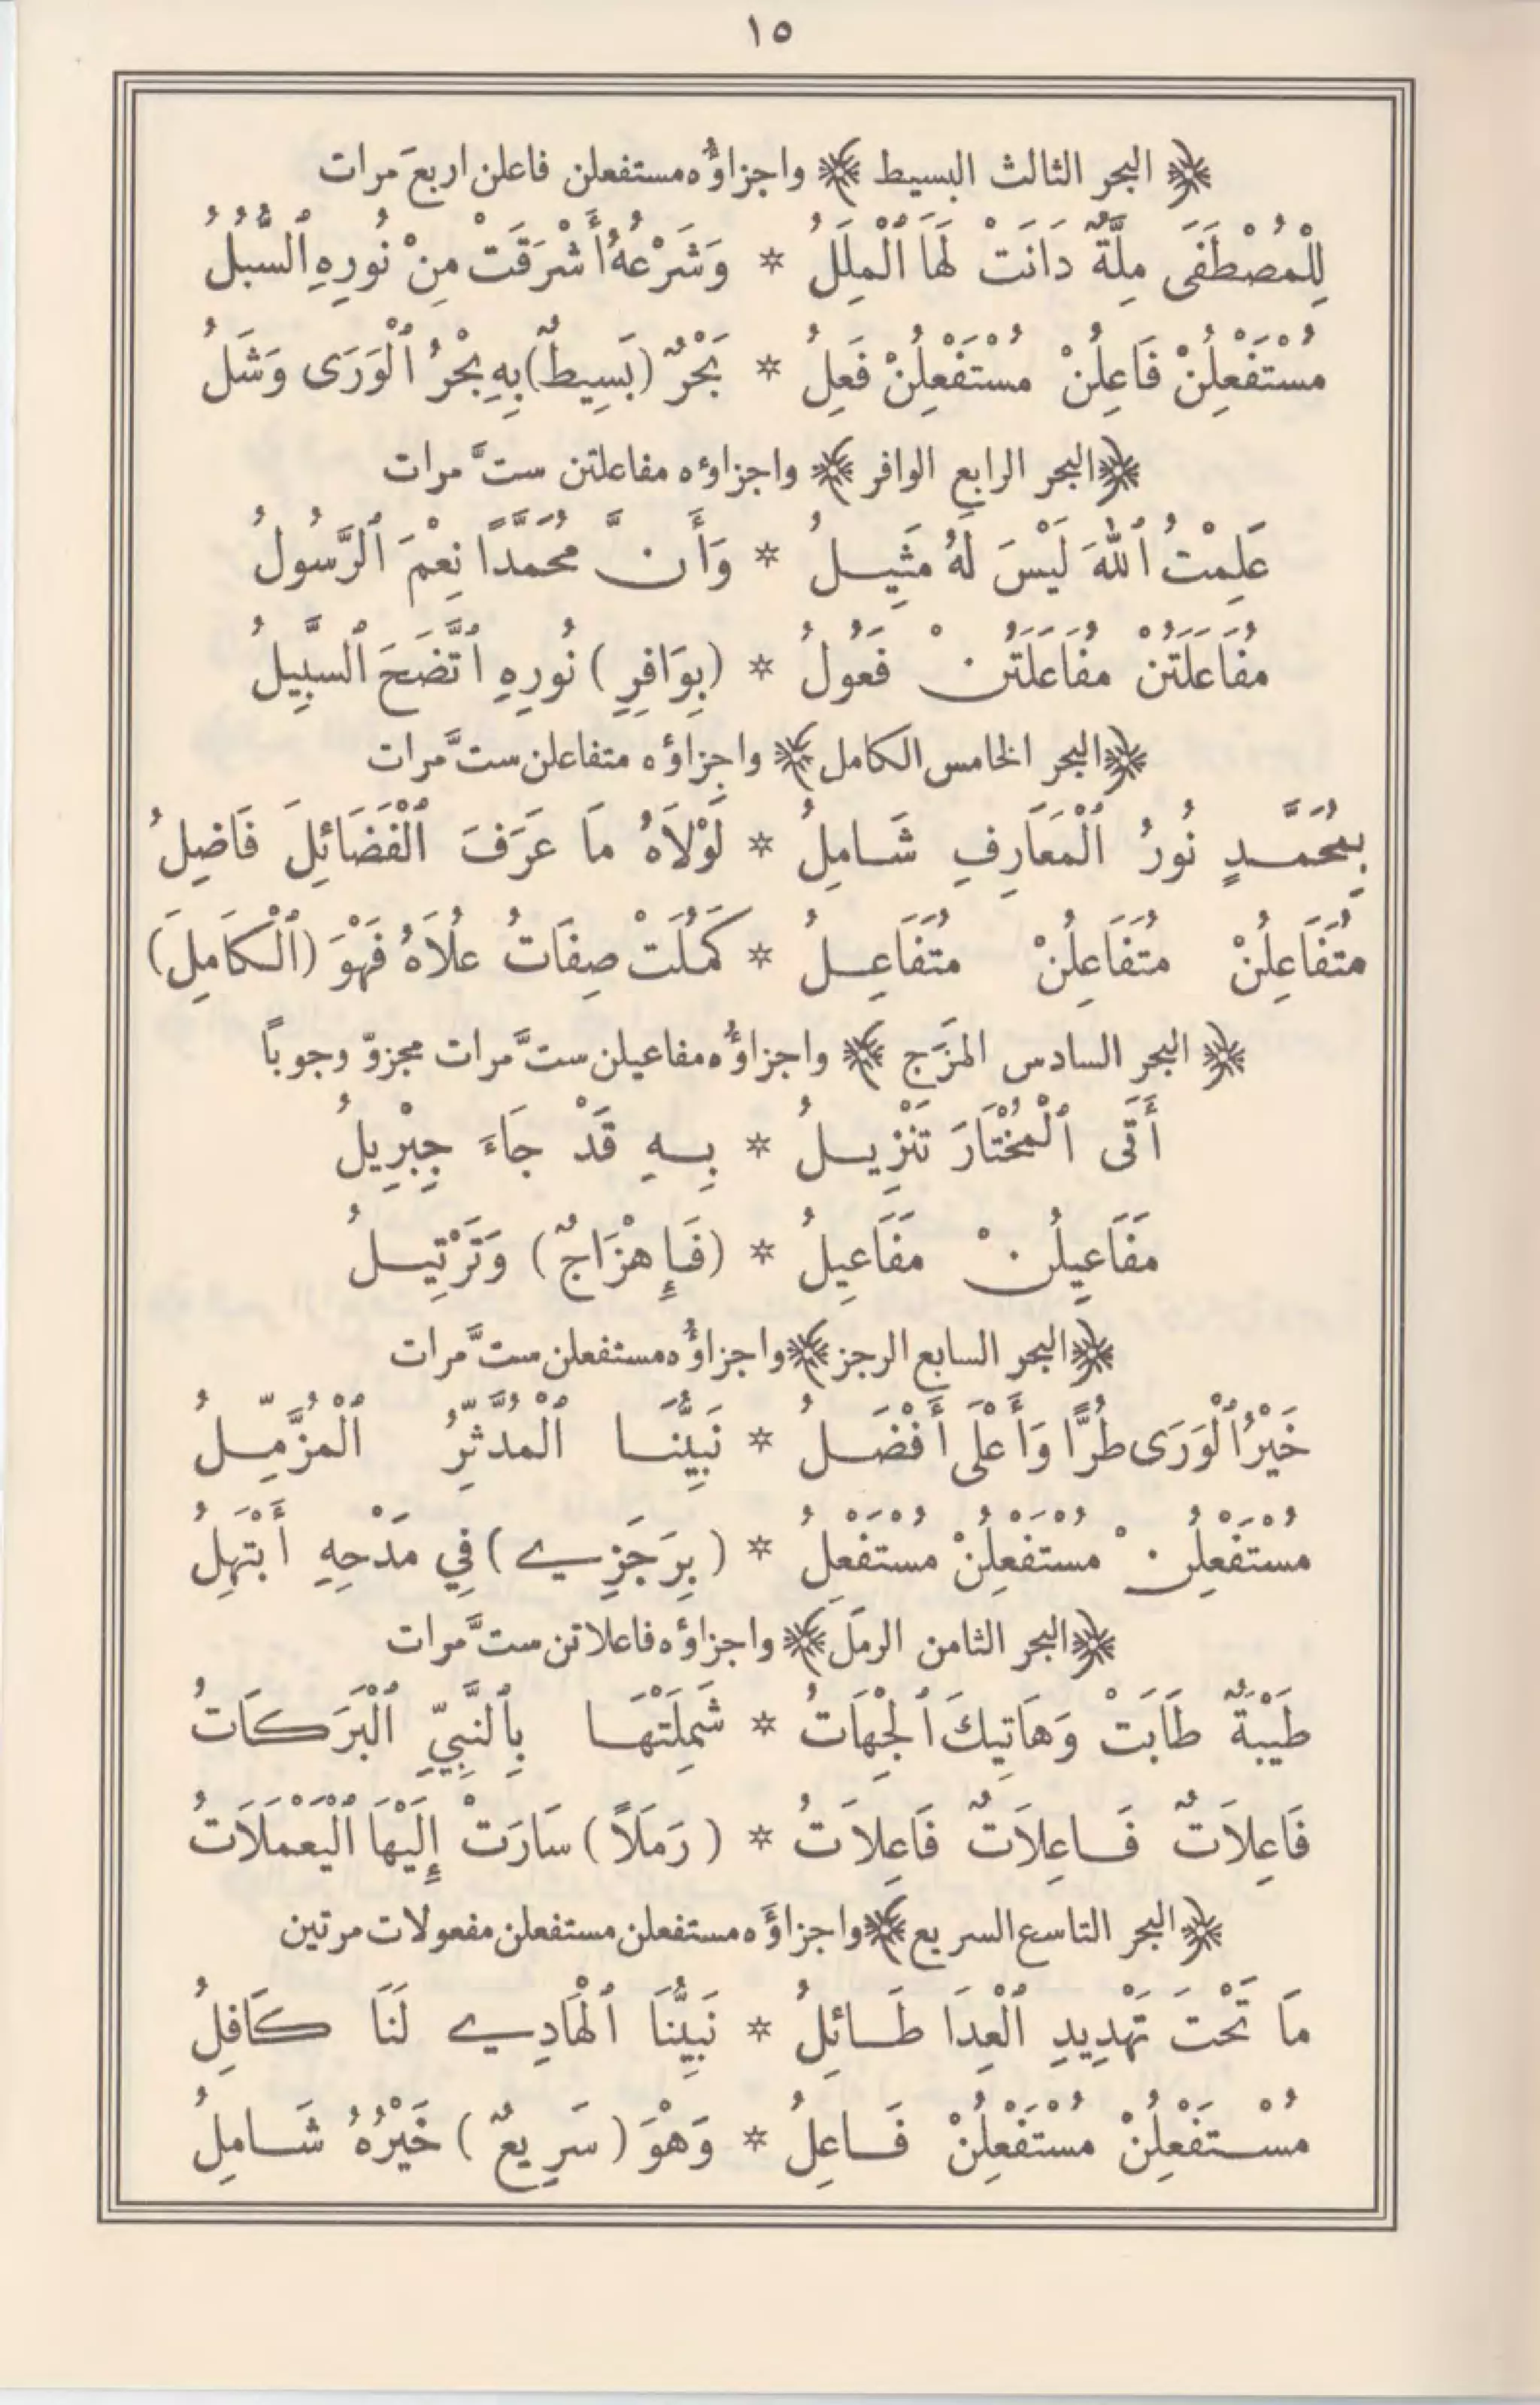 ١٥
﴿ البحر الثالث البسيط ﴾ واجزاؤُه مستفعلن فاعلن اربعَ مرات
لِلْمُصْطَفَى مِلَّةٌ دَانَتْ لَهَا ٱلْمِلَلُ * وَشَرْعُهُ أَشْرَقَتْ مِنْ نُورِهِ ٱلسُّبُلُ
مُسْتَفْعِلُنْ فَاعِلُنْ مُسْتَفْعِلُنْ فَعِلُ * بَحْرٌ (بَسِيطٌ) بِهِ بَحْرُ ٱلْوَرَى وَشَلُ
﴿ البحر الرابع الوافر ﴾ واجزاوءه مفاعلتن ستَّ مرات
عَلِمْتُ ٱللهَ لَيْسَ لَهُ مَثِيلُ * وَأَنَّ مُحَمَّدًا نِعْمَ ٱلرَّسُولُ
مُفَاعَلَتُنْ مُفَاعَلَتُنْ فَعُولُ * (بِوَافِرِ) نُورِهِ ٱتَّضَحَ ٱلسَّبِيلُ
﴿ البحر الخامس الكامل ﴾ واجزاؤه متفاعلن ستَّ مرات
بِمُحَمَّدٍ نُورُ ٱلْمَعَارِفِ شَامِلُ * لَوْلَاهُ مَا عَرَفَ ٱلْفَضَائِلَ فَاضِلُ
مُتَفَاعِلُنْ مُتَفَاعِلُنْ مُتَفَاعِلُ * كَمُلَتْ صِفَاتُ عُلَاهُ فَهْوَ (ٱلْكَامِلُ)
﴿ البحر السادس الهزَج ﴾ واجزاؤُه مفاعيلن ستَّ مرات مجزوّ وجوباً
أَتَى ٱلْمُخْتَارَ تَنْزِيلُ * بِهِ قَدْ جَاءَ جِبْرِيلُ
مَفَاعِيلُنْ مَفَاعِيلُ * (فَإِهْزَاجٌ) وَتَرْتِيلُ
﴿ البحر السابع الرجز ﴾ واجزاؤُه مستفعلن ستَّ مرات
خَيْرُ ٱلْوَرَى طُرًّا وَأَعْلَى أَفْضَلُ * نَبِيُّنَا ٱلْمُدَّثِّرُ ٱلْمُزَّمِّلُ
مُسْتَفْعِلُنْ مُسْتَفْعِلُنْ مُسْتَفْعِلُ * (بِرَجَزِي) فِي مَدْحِهِ أَبْتَهِلُ
﴿ البحر الثامن الرمَل ﴾ واجزاؤه فاعلاتن ستَّ مرات
طَيْبَةٌ طَابَتْ وَهَاتِيكَ ٱلْجِهَاتُ * شَمِلَتْهَا بِٱلنَّبِيِّ ٱلْبَرَكَاتُ
فَاعِلَاتٌ فَاعِلَاتٌ فَاعِلَاتُ * (رَمَلاً) سَارَتْ إِلَيْهَا ٱلْيَعْمَلَاتُ
﴿ البحر التاسع السريع ﴾ واجزاؤَه مستفعلن مستفعلن مفعولات مرتين
مَا تَحْتَ تَهْدِيدِ ٱلْعِدَا طَائِلُ * نَبِيُّنَا ٱلْهَادِي لَنَا كَافِلُ
مُسْتَفْعِلُنْ مُسْتَفْعِلُنْ فَاعِلُ * وَهْوَ (سَرِيعٌ) خَيْرُهُ شَامِلُ